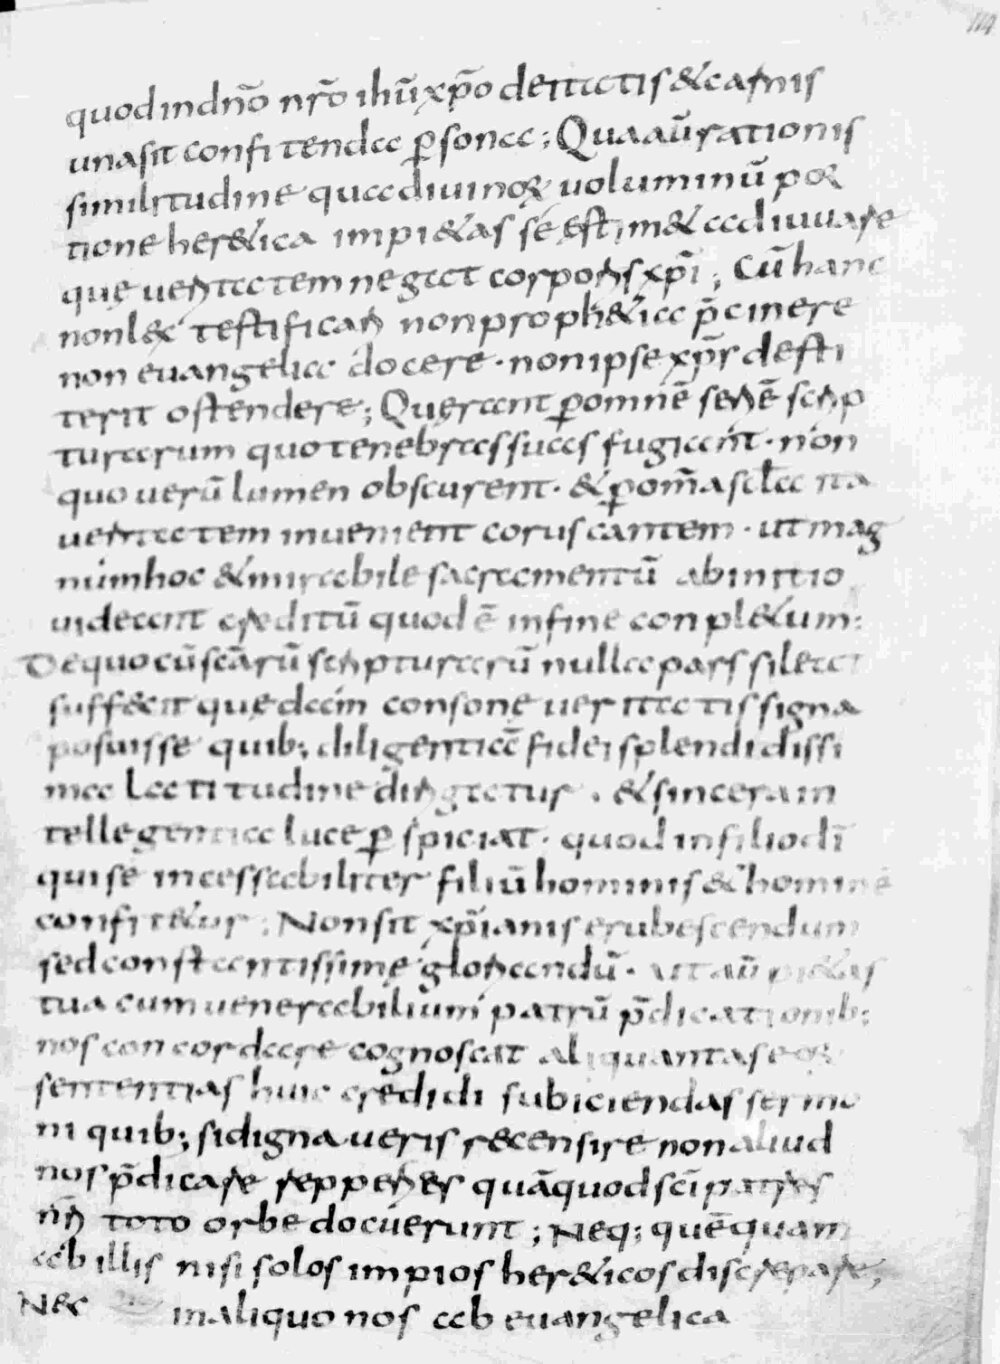 114
quod in dn̄o nr̄o ihū xp̄o deitatis & carnis
una sit confitenda p̱sona; Qua aū rationis
similitudine qua diuinoꝝ uoluminū poꝛ
tione her&ica impi&as se ęstim& adiuuare
quę ueritatem negat corporis xp̄i; Cū hanc
non lex testificari non proph&ica p̄cinere
non euangelica docere · non ipse xp̄s desti
terit ostendere; Quęrant p̱ omnē seriē scrip
turarum quo tenebras suas fugiant · non
quo uerū lumen obscurent · & p̱ om̄a sc̄la ita
ueritatem inuenient coruscantem · ut mag
num hoc & mirabile sacramentū ab initio
uideant creditū quod ē in fine conpl&um:
De quo cū sc̄arū scripturarū nulla pars sileat
suffecit quędam consonę ueritatis signa
posuisse quib; diligentia fidei splendidissi
ma latitudine dirigatur · & sincera in
tellegentiae luce p̱spiciat · quod in filio dī
qui se incessabiliter filiū hominis & hominē
confit&ur; Non sit xp̄ianis erubescendum
sed constantissimę gloriandū · ut aū pi&as
tua cum uenerabilium patrū p̄dicationib;
nos concordare cognoscat aliquantas eoꝝ
sententias huic credidi subiciendas sermo
ni quib; si digna ueris recensire non aliud
nos p̄dicare repperies quā quod sc̄i patres
nr̄i toto orbe docuerunt; Neq; quēquam
ab illis nisi solos impios her&icos discrepare;
Nec in aliquo nos ab euangelica